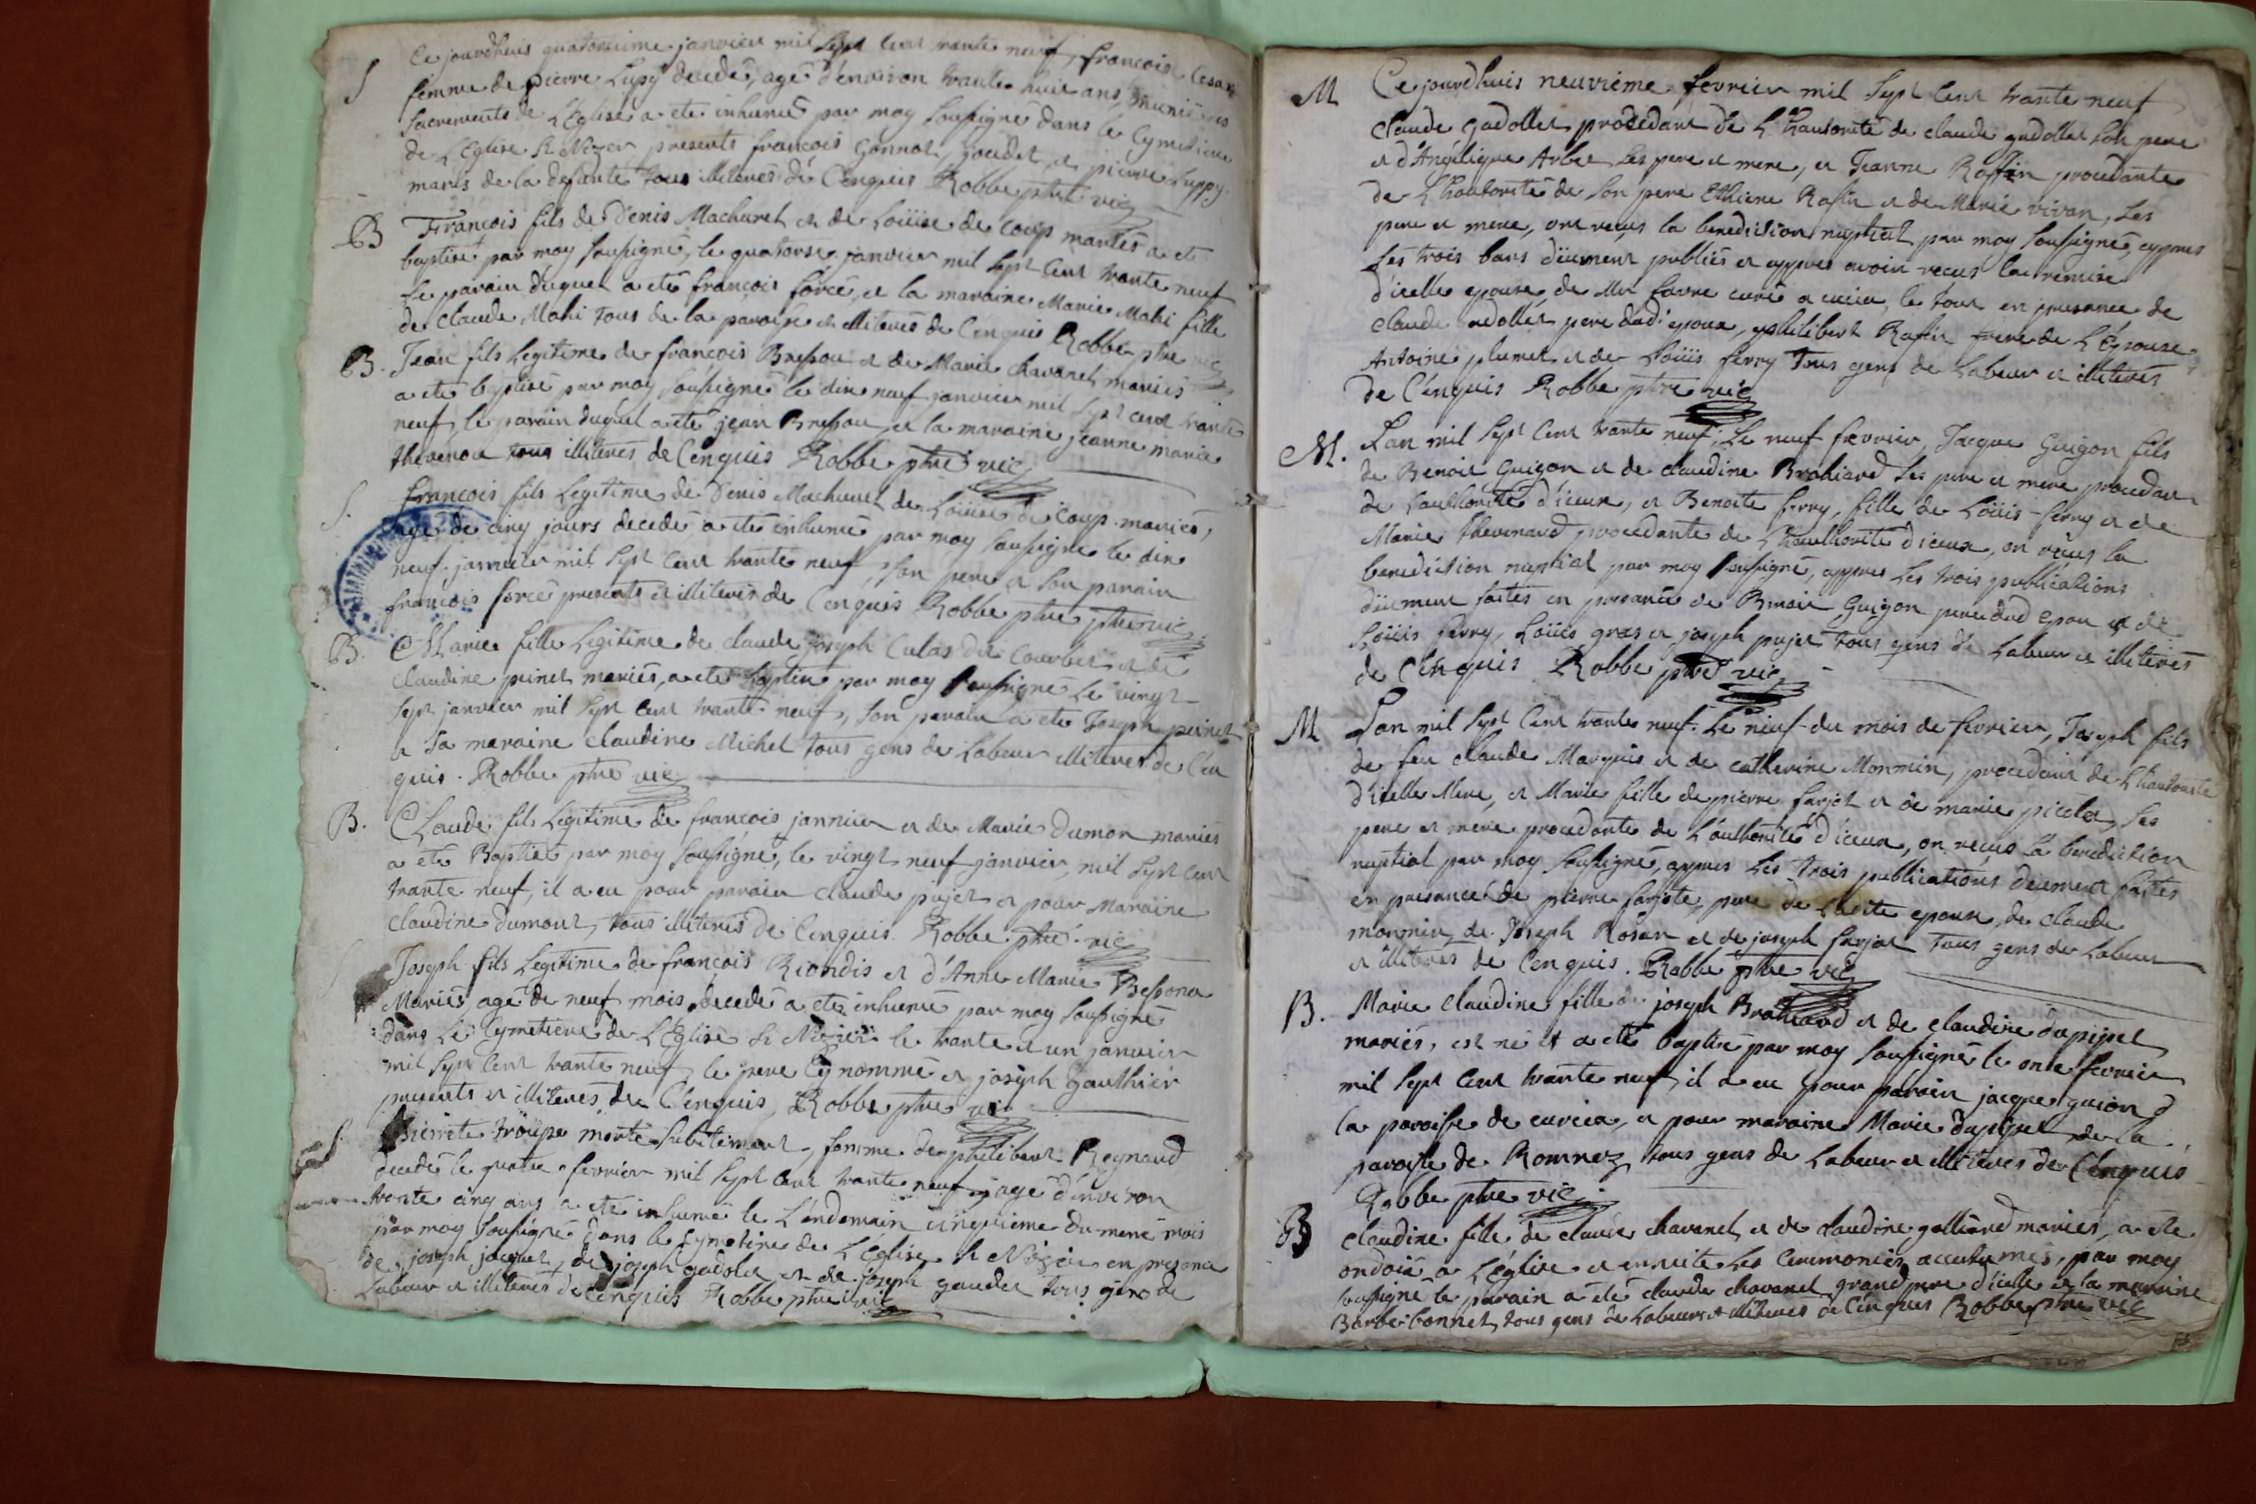 S Ce jourdhuis quatorzieme janvier mil sept cent trante neuf, francoise Cesar
femme de pierre Luppy decedée, agé d'environ trante huit ans, munie des
sacrements de L'Eglise a ete inhumé par moy soussigné dans le Cymetiere
de L'Eglise St Nizier presents francois Gonnot, joudet, et pierre Luppy
maris de la defante tous illiterés de Cenquis Robbe ptre vic
B Francois fils de Denis Machuret et de Loüise de Coup mariés a eté
baptisé par moy soussigné, le quatorse janvier mil sept cent trante neuf
le parain duquel a eté francois forcé, et la maraine Marie Mahi fille
de claude Mahi tous de la paroisse et illiterés de Cenquis Robbe ptre vic
B. Jean fils legitime de francois Bressou et de Marie chavanet mariés
a eté baptisé par moy soussigné le dix neuf janvier mil sept cent trante
neuf, le parain duquel a eté jean Bressou et la maraine jeanne marie
thevenon tous illiterés de Cenquis Robbe ptre vic
S. francois fils legitime de Denis Machuret de Loüise de Coup mariés,
agé de cinq jours decedé a eté inhumé par moy soussigné le dix
neuf janvier mil sept cent trante neuf, son pere et son parain
francois forcé presents et illiterés de Cenquis Robbe ptre ptre vic
B. Marie fille legitime de claude joseph Culas dit Courbet et de
claudine peinet mariés, a eté baptisé par moy soussigné le vingt
sept janvier mil sept cent trante neuf, son parain a eté Joseph peinet
et sa maraine claudine Michel tous gens de Labeur illiterés de Cen
quis. Robbe ptre vic
B. Claude fils legitime de francois jannier et de Marie Dumon mariés
a eté Baptisé par moy soussigné, le vingt neuf janvier, mil sept cent
trante neuf, il a eu pour parain claude pujet et pour maraine
claudine dumont, tous illiterés de Cenquis. Robbe ptre vic
Joseph fils legitime de francois Riondis et d'Anne Marie Bessona
Mariés agé de neuf mois decedé a eté inhumé par moy soussigné
dans Le Cymetiere de L'Eglise St Nizier le trante et un janvier
mil sept cent trante neuf, le pere cy nommé et joseph Gauthier
presents et illiterés de Cenquis, Robbe ptre vic
S. Pierrete troüpe morte subitement, femme de philibert Reynaud
decedé le quatre fevrier mil sept cent trante neuf, agé d'environ
trante cinq ans a eté inhumé le Lendemain cinquieme du meme mois
par moy soussigné dans le Cymetiere de L'Eglise St Nizier en presence
de joseph jacquet, de joseph gadolet et de joseph gaudet tous gens de
Labeur et illiterés de Cenquis Robbe ptre vic
M Ce jourdhuis neuvieme fevrier mil sept cent trante neuf
claude gadollet procedant de L'hautorité de claude gadollet son pere
et d'Angélique Arbet ses pere et mere, et Jeanne Raffin procedante
de L'hautorité de son pere Ethiene Rafin et de Marie vivan, ses
pere et mere, ont reçus la benediction nuptial par moy soussigné, appres
les trois bans düement publiés et appres avoir reçus la remise
d'icelle epouse, de Mr favre curé a cuiria, le tout en presance de
claude gadollet pere dud: epoux, philibert Rafin frere de L'Epouse
Antoine plumet et de Loüis ferry tous gens de Labeur et illiterés
de Cenquis Robbe ptre vic
M. L'an mil sept cent trante neuf, Le neuf fevrier, Jacque Guigon fils
de Benoit Guigon et de claudine Brohiard ses pere et mere procedant
de L'authorité d'iceux, et Benoite ferry, fille de Loüis ferry et de
Marie thevenard procedante de L'hauthorité d'iceux, on reçus la
benediction nuptial par moy soussigné, appres Les trois publications
düement faites en presance de Benoit Guigon pere dud epoux et de
Loüis ferry, Loüis gras et joseph pujet tous gens de Labeur et illiterés
de Cenquis. Robbe ptre vic
M L'an mil sept cent trante neuf. Le neuf du mois de fevrier, Joseph fils
de feu claude Marquis et de catherine Monmin, procedant de L'hautorité
d'icelle Mere, et Marie fille de pierre farjot et de marie picolet, ses
pere et mere procedante de L'authorité d'iceux, on reçus la benediction
nuptial par moy soussigné, appres Les trois publications deument faites
en presance de pierre farjote, pere de Ladite epouse, de claude
monmin, de Joseph Rosan et de joseph farjot tous gens de Labeur
et illiterés de Cenquis. Robbe ptre vic
B. Marie claudine fille de joseph Brohiard et de claudine dupipet
mariés, est né et a eté baptisé par moy soussigné le onse fevrier
mil sept cent trante neuf, il a eu pour parain jacque guion
la paroisse de curcia, et pour maraine Marie dupipet de la
paroisse de Romnez tous gens de Labeur et illiterés de Cenquis
Robbe ptre vic
B claudine fille de claude chavanet et de claudine galliard mariés, a eté
ondoié a L'église et ensuite Les Ceremonies accutumés, par moy
soussigné le parain a eté claude chavanet grand pere d'icelle et la maraine
Barbe bonnet, tous gens de Labeurs et illiterés de Cenquis Robbe ptre vic